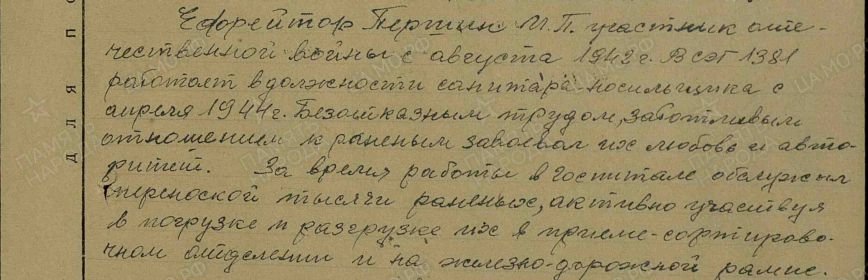 Ефрейтор Першин И.П. участник оте-
чественной войны с августа 1942 г. В СЭГ 1381
работает в должности санитара-носильщика с
апреля 1944 г. Безотказным трудом, заботливым
отношением к раненым завоевал их любовь и авто-
ритет. За время работы в госпитале обслужил
переноской тысячи раненых, активно участвуя
в погрузке и разгрузке их в приемо-сортирово-
чном отделении и на железно-дорожной рампе.
Д Л Я П О